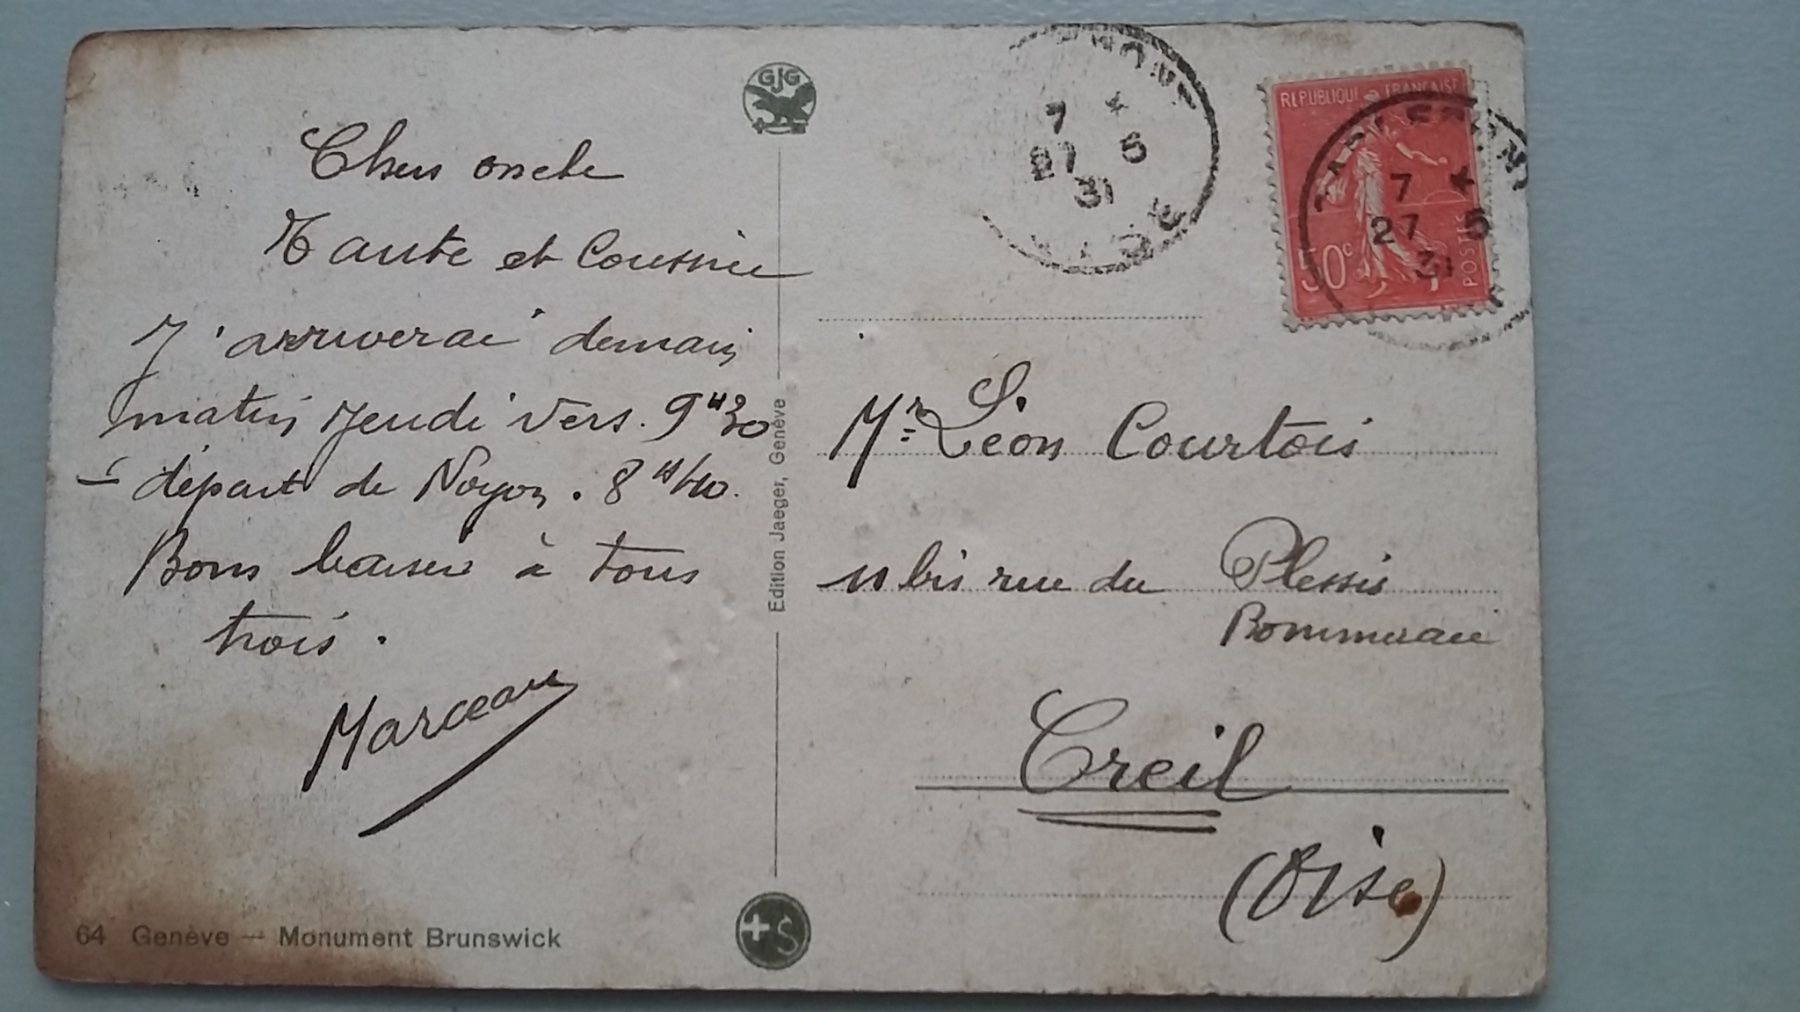 GJG
Chers oncle
Tante et Cousine
J'arriverai demain
matin Jeudi vers. 9H30
départ de Noyon. 8H40.
Bons baisers à tous
trois.
Marceau
64 Genève — Monument Brunswick
Edition Jaeger, Genève
+S
7 *
27 5
31
REPUBLIQUE FRANÇAISE
50c
POSTES
7 *
27 5
31
Mr Léon Courtois
11 bis rue du Plessis
Pommeraie
Creil
(Oise)